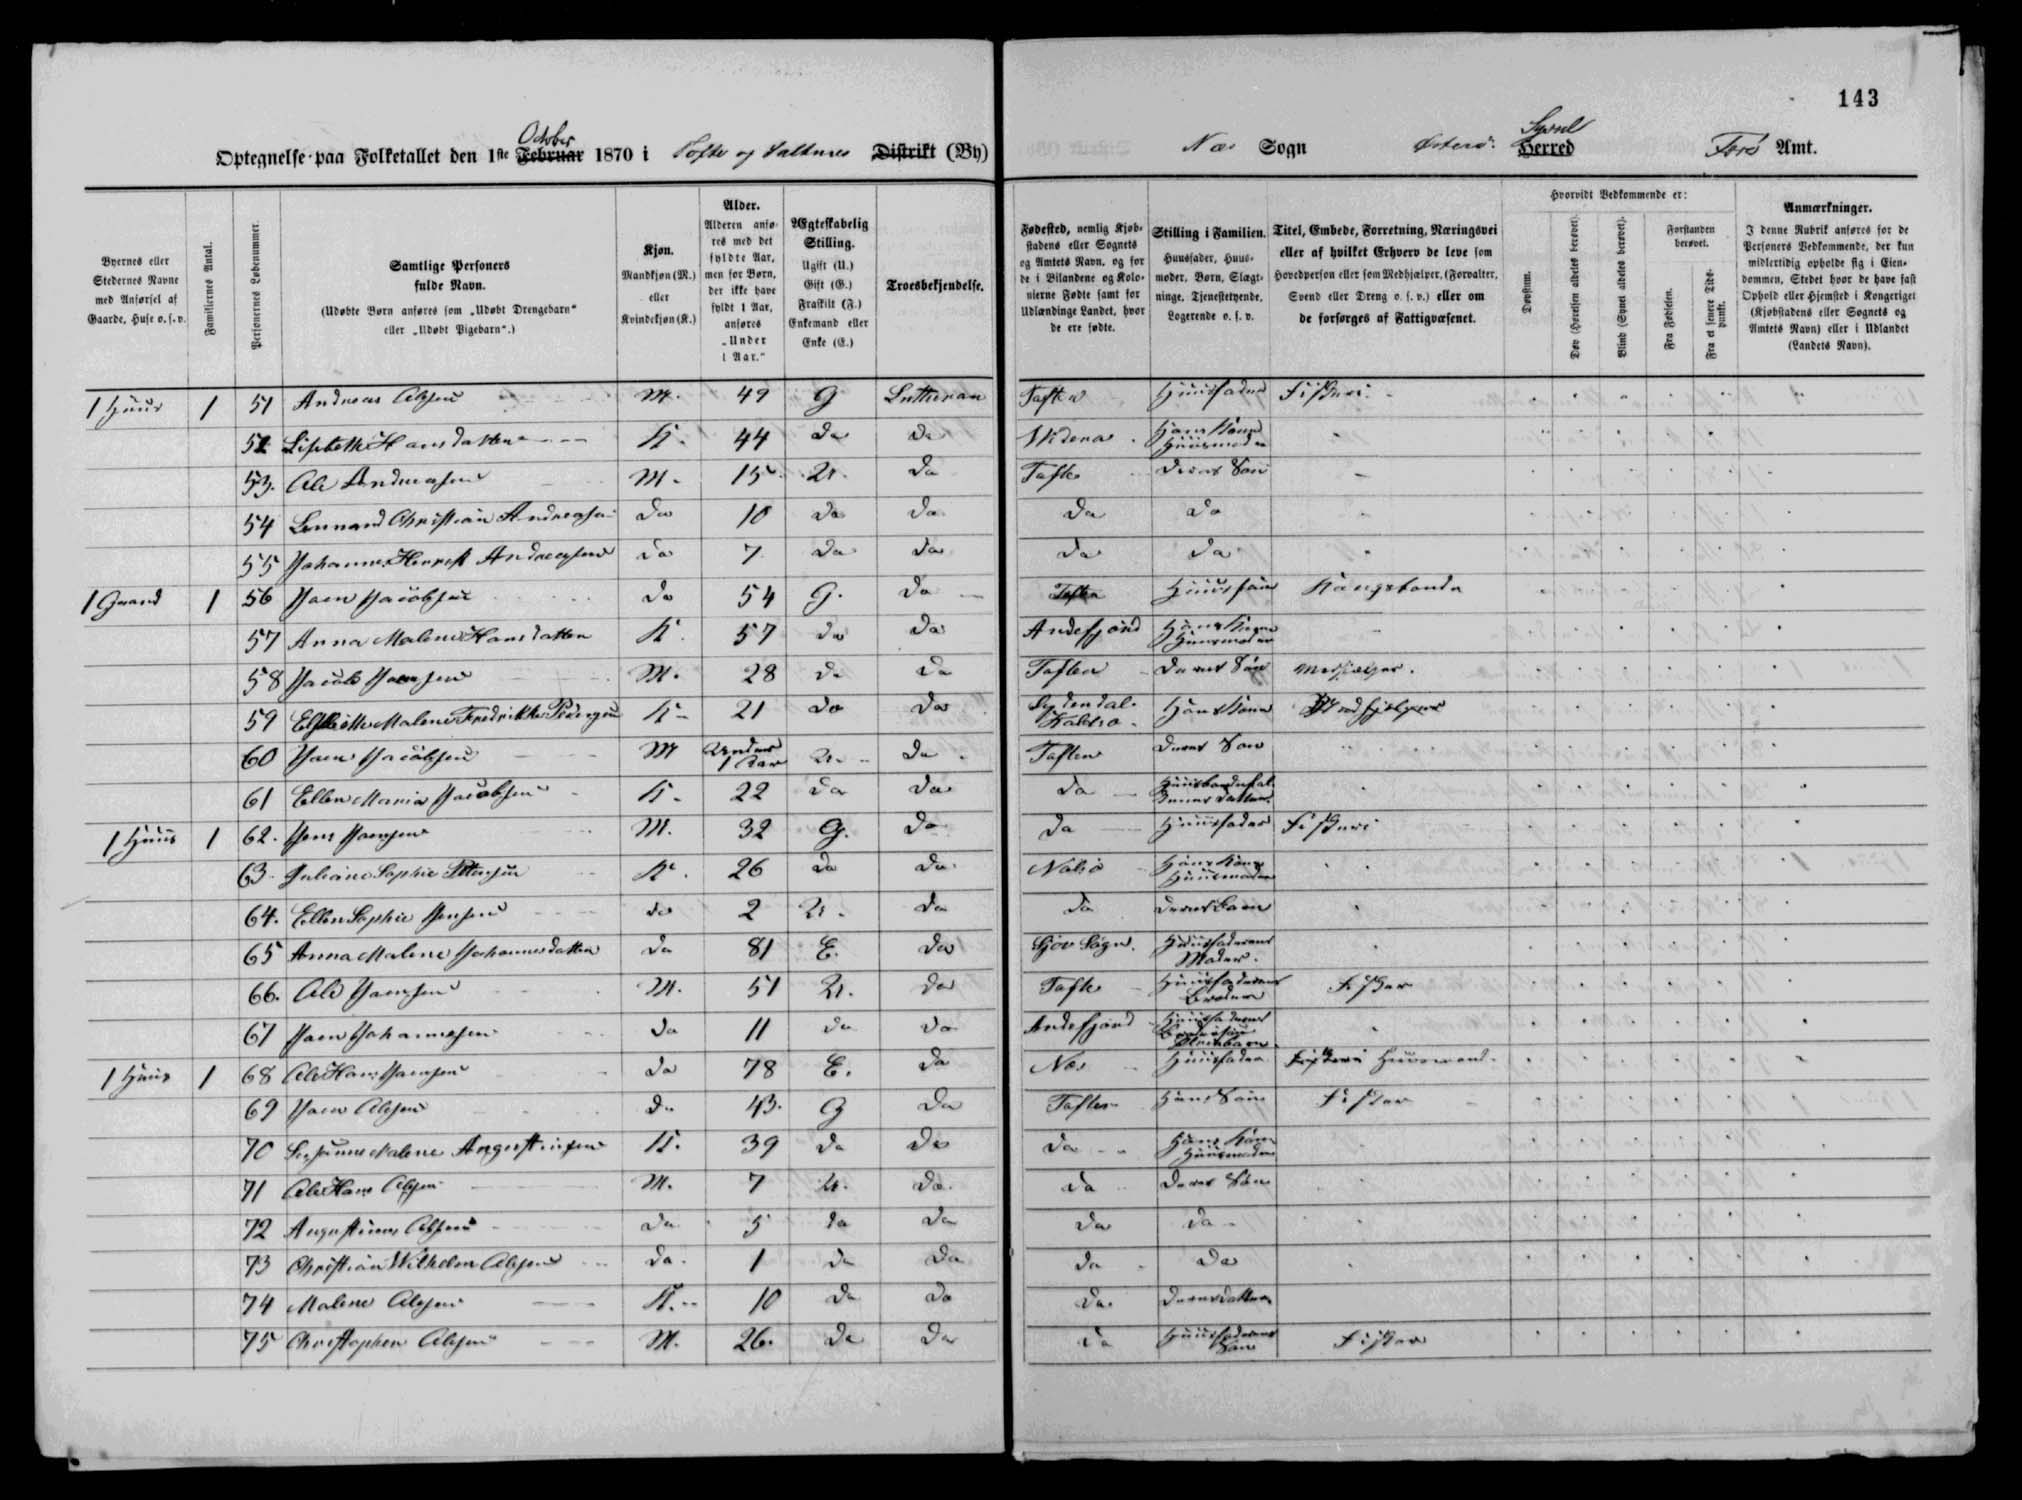 143
October
Optegnelse paa Folketallet den 1ste Februar 1870 i Tofte og Saltnes Distrikt (By)
Næs Sogn Østerø Syssel Herred Færø Amt.
Byernes eller Stedernes Navne med Anførsel af Gaarde, Huse o. s. v.
Familiernes Antal.
Personernes Løbenummer.
Samtlige Personers fulde Navn.
(Udøbte Børn anføres som „Udøbt Drengebarn“ eller „Udøbt Pigebarn“.)
Kjøn.
Mandkjøn (M.) eller Kvindekjøn (K.)
Alder.
Alderen anføres med det fyldte Aar, men for Børn, der ikke have fyldt 1 Aar, anføres „Under 1 Aar.“
Ægteskabelig Stilling.
Ugift (U.) Gift (G.) Fraskilt (F.) Enkemand eller Enke (E.)
Troesbekjendelse.
Fødested, nemlig Kjøbstadens eller Sognets og Amtets Navn, og for de i Bilandene og Kolonierne Fødte samt for Udlændinge Landet, hvor de ere fødte.
Stilling i Familien.
Huusfader, Huusmoder, Børn, Slægtninge, Tjenestetyende, Logerende o. s. v.
Titel, Embede, Forretning, Næringsvei eller af hvilket Erhverv de leve som Hovedperson eller som Medhjælper, (Forvalter, Svend eller Dreng o. s. v.) eller om de forsørges af Fattigvæsenet.
Hvorvidt Vedkommende er:
Døvstum.
Døv (Hørelsen aldeles berøvet).
Blind (Synet aldeles berøvet).
Forstanden berøvet.
Fra Fødselen.
Fra et senere Tidspunkt.
Anmærkninger.
I denne Rubrik anføres for de Personers Vedkommende, der kun midlertidig opholde sig i Eiendommen, Stedet hvor de have fast Ophold eller Hjemsted i Kongeriget (Kjøbstadens eller Sognets og Amtets Navn) eller i Udlandet (Landets Navn).
1 Huus 1 51 Andreas Olesen M. 49 G Lutheran Toften Huusfader Fiskeri
52 Lisbeth Hansdatter K. 44 do do Hans Kone Huusmoder
53. Ole Andreasen M. 15 U. do Tofte Deres Søn
54 Lennard Christian Andreasen do 10 do do do do
55 Johannes Andreasen do 7 do do do do
1 Gaard 1 56 Joen Jacobsen do 54 G. do Toften Kongsbonde
57 Anna Malene Hansdatter K. 57 do do Andefjord Hans Kone Huusmoder
58 Jacob Joensen M. 28 do do Toften Deres Søn Medhjælper.
59 Malene Fredrikke K 21 do do Hans Kone
60 Joen Jacobsen M Under 1 Aar U. do Toften Deres Søn
61 Ellen Maria Jacobsen K. 22 do do do
1 Huus 1 62. Jens Joensen M. 32 G. do do Huusfader Fiskeri
63. Juliane Sophie Petersen K. 26 do do Nolsø Hans Kone Huusmoder
64. Ellen Sophie Jensen do 2 U. do do Deres Barn
65 Anna Malene Johannesdatter do 81 E. do Sjov Sogn. Huusfaderens Moder.
66. Ole Joensen M. 51 U. do Tofte Huusfaderens Broder Fisker
67 Joen Johannesen do 11 do do Andefjord Huusfaderens
1 Huus 1 68 Ole Hans Joensen do 78 E. do Næs Huusfader Huusmand
69 Joen Olesen do 43. G do Toften Hans Søn Fisker
70 Susanne Malene Augustinsen K. 39 do do do Hans Kone Huusmoder
71 Ole Hans Olesen M. 7 U. do do Deres Søn
72 Augustinus Olesen do 5 do do do do
73 Christian Wilhelm Olesen do. 1 do do do do
74 Malene Olesen K. 10 do do do Deres datter
75 Christopher Olesen M. 26. do do do Huusfaderens Søn Fisker